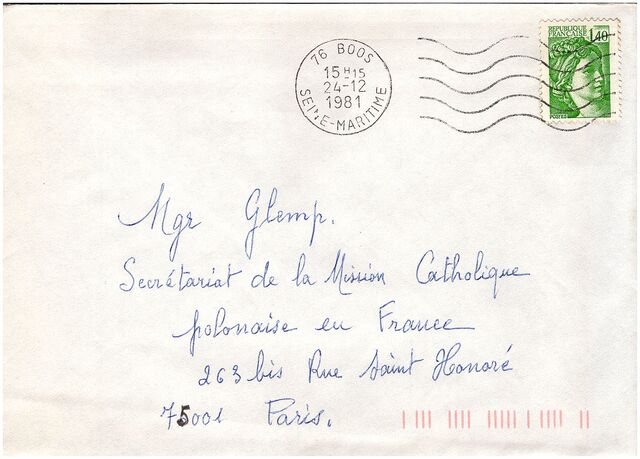 76 BOOS
15H15
24-12
1981
SEINE-MARITIME
REPUBLIQUE
FRANCAISE
1,40
POSTES
Mgr Glemp.
Secrétariat de la Mission Catholique
polonaise en France
263 bis Rue Saint Honoré
75001 Paris.